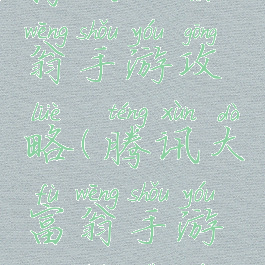 wēng shǒu yóu gōng
翁手游攻
lüè téng xùn dà
略(腾讯大
fù wēng shǒu yóu
富翁手游